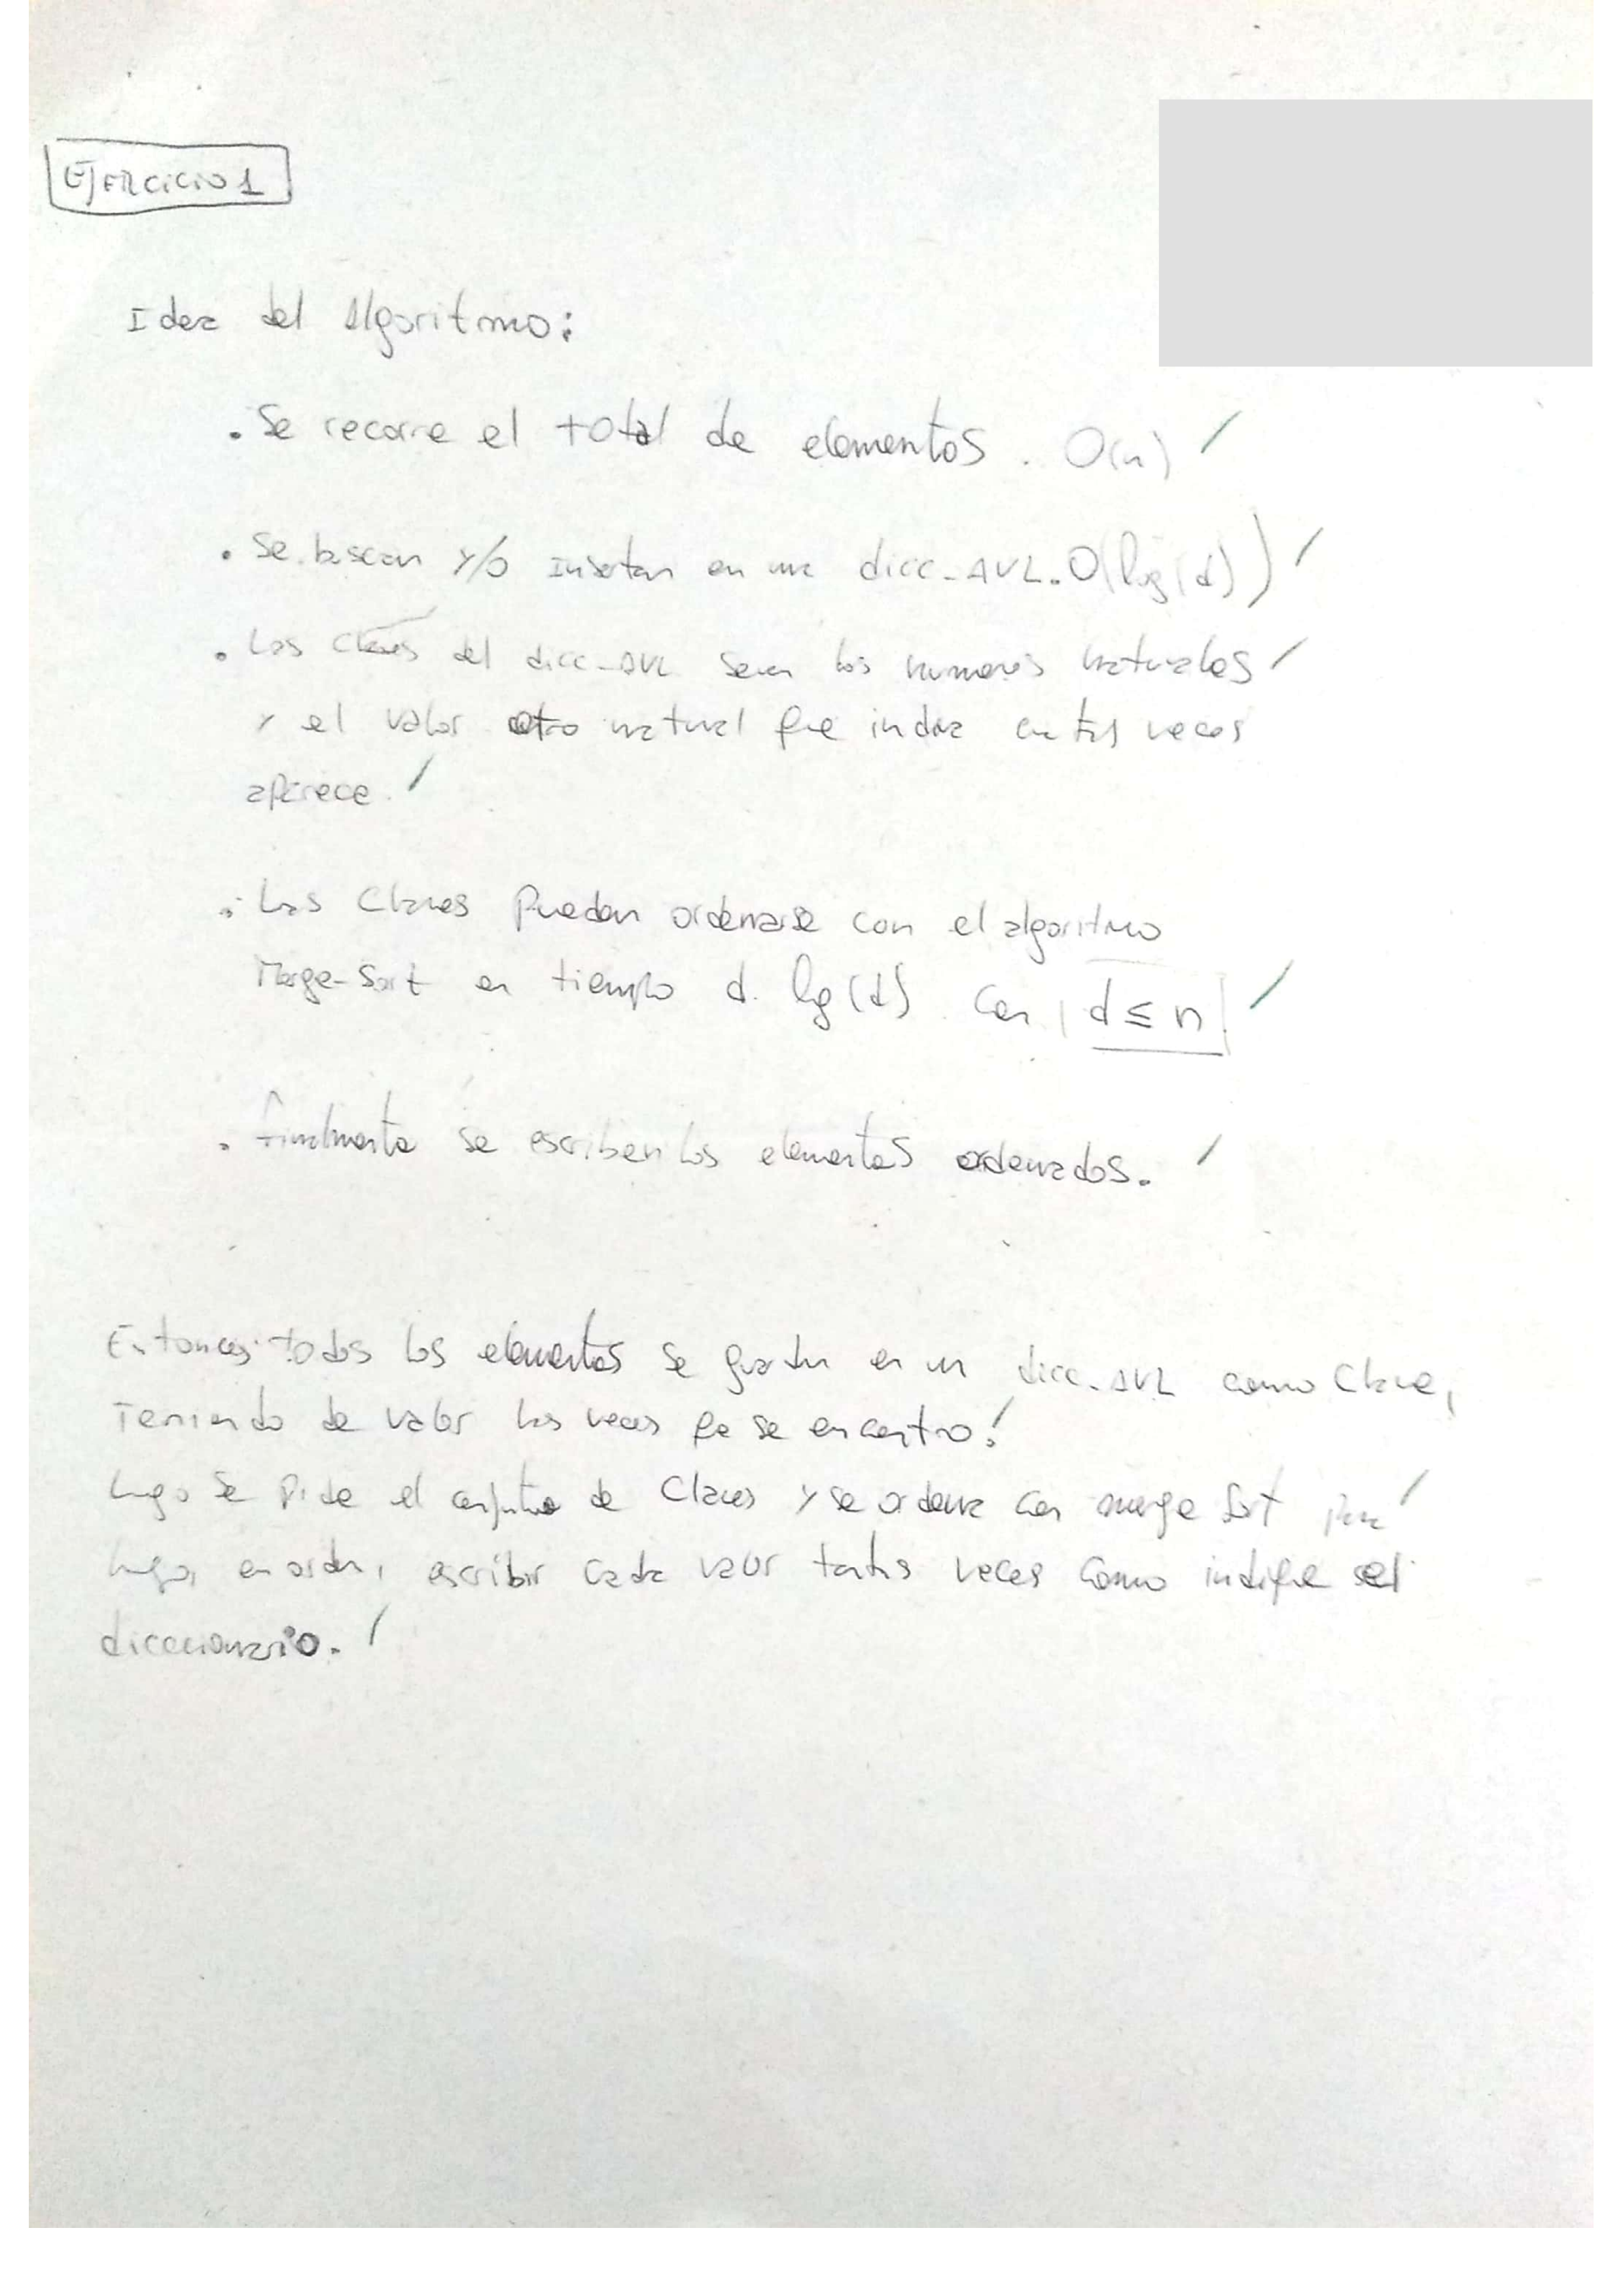 EJERCICIO 1
Idea del Algoritmo:
. Se recorre el total de elementos. O(n)
. Se buscan y/o insertan en un dicc-AVL. O(log(d))
. Las claves del dicc-AVL seran los numeros naturales
y el valor otro natural que indica cuantas veces
aparece.
. Las Claves pueden ordenarse con el algoritmo
Merge-Sort en tiempo d. lg(d) con d ≤ n
. finalmente se escriben los elementos ordenados.
Entonces todos los elementos se guardan en un dicc-AVL como Clave,
Teniendo de valor las veces que se encontro.
luego se pide el conjunto de Claves y se ordena con merge Sort para
luego, en orden, escribir cada valor tantas veces como indique el
diccionario.